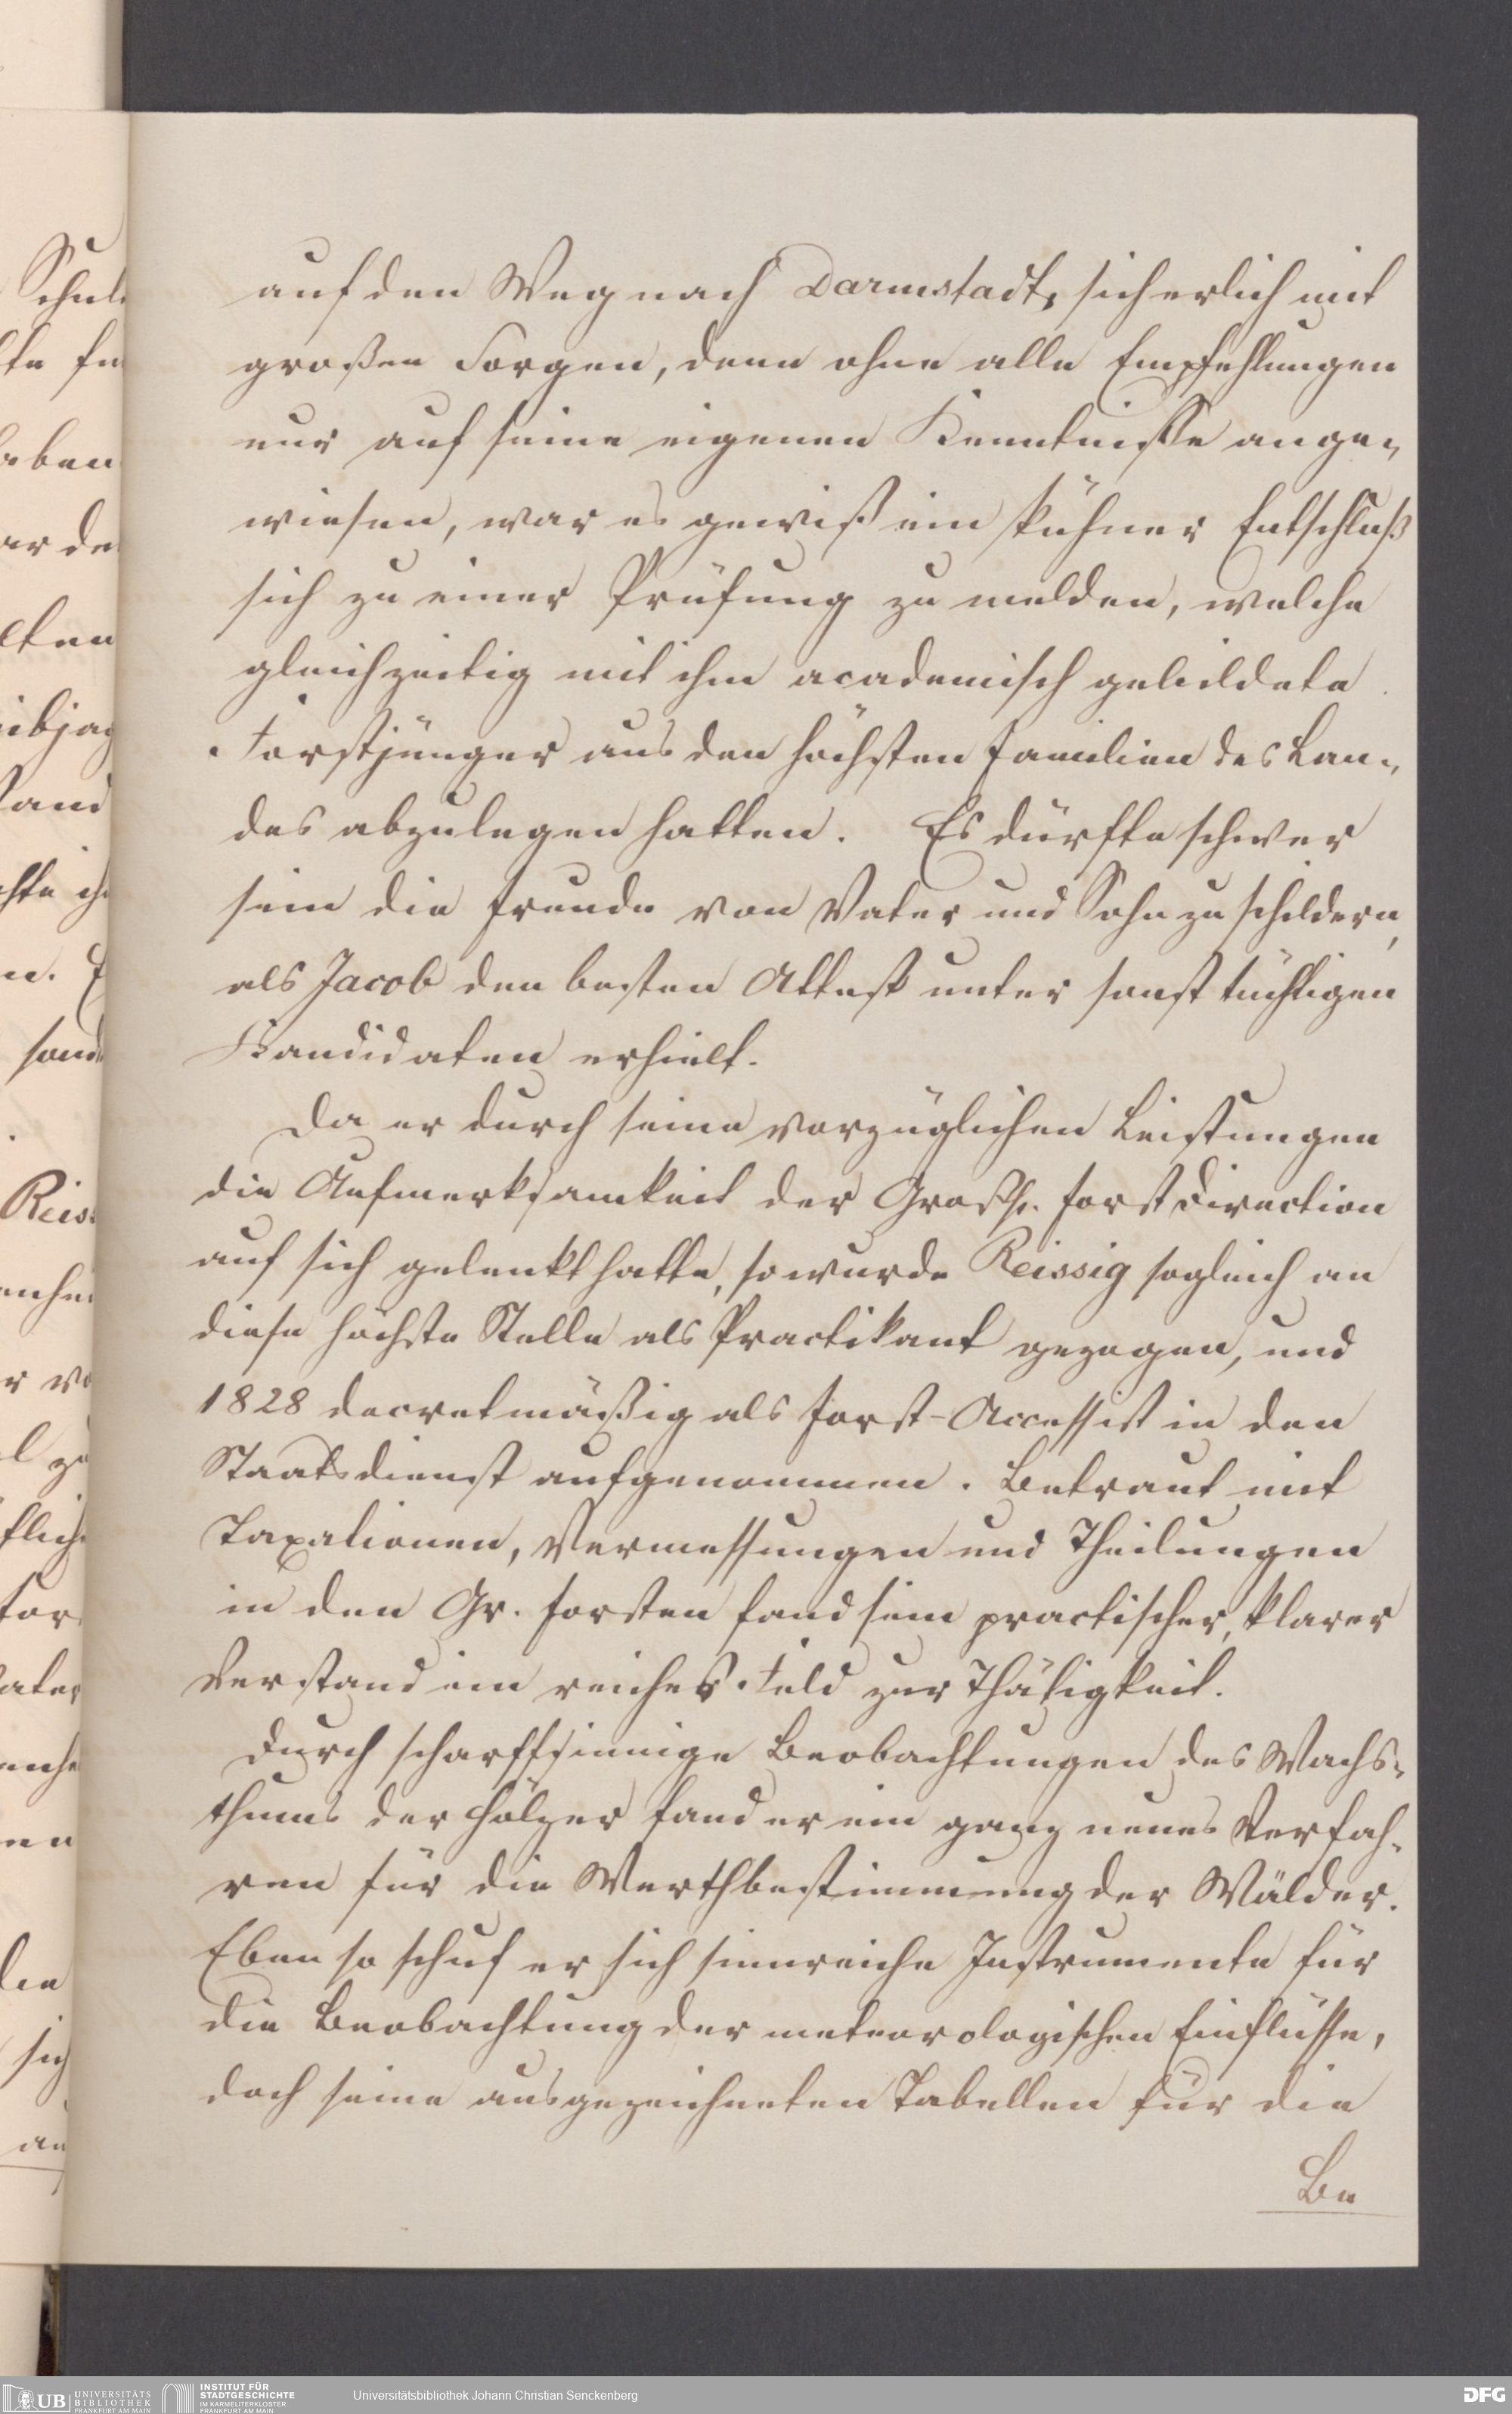 auf den Weg nach Darmstadt, sicherlich mit
großen Sorgen, denn ohne alle Empfehlungen
nur auf seine eigenen Kenntnisse ange-
wiesen, war es gewiß ein kühner Entschluß
sich zu einer Prüfung zu melden, welche
gleichzeitig mit ihm academisch gebildete
Forstjünger aus den höchsten Familien des Lan-
des abzulegen hatten. Es dürfte schwer
sein die Freude von Vater und Sohn zu schildern,
als Jacob den besten Attest unter sonst tüchtigen
Kandidaten erhielt.
Da er durch seine vorzüglichen Leistungen
die Aufmerksamkeit der Großh. Forstdirection
auf sich gelenkt hatte, so wurde Reissig sogleich an
diese höchste Stelle als Practikant gezogen, und
1828 decretmäßig als Forst-Accessist in den
Staatsdienst aufgenommen. Betraut mit
Taxationen, Vermessungen und Theilungen
in den Gr. Forsten fand sein practischer, klarer
Verstand ein reiches Feld zur Thätigkeit.
Durch scharffsinnige Beobachtungen des Wachs-
thums der Hölzer fand er ein ganz neues Verfah-
ren für die Werthbestimmung der Wälder.
Eben so schuf er sich sinnreiche Instrumente für
die Beobachtung der meteorologischen Einflüsse,
doch seine ausgezeichneten Tabellen für die
Be
UB UNIVERSITÄTS
BIBLIOTHEK
FRANKFURT AM MAIN
INSTITUT FÜR
STADTGESCHICHTE
IM KARMELITERKLOSTER
FRANKFURT AM MAIN
Universitätsbibliothek Johann Christian Senckenberg
DFG